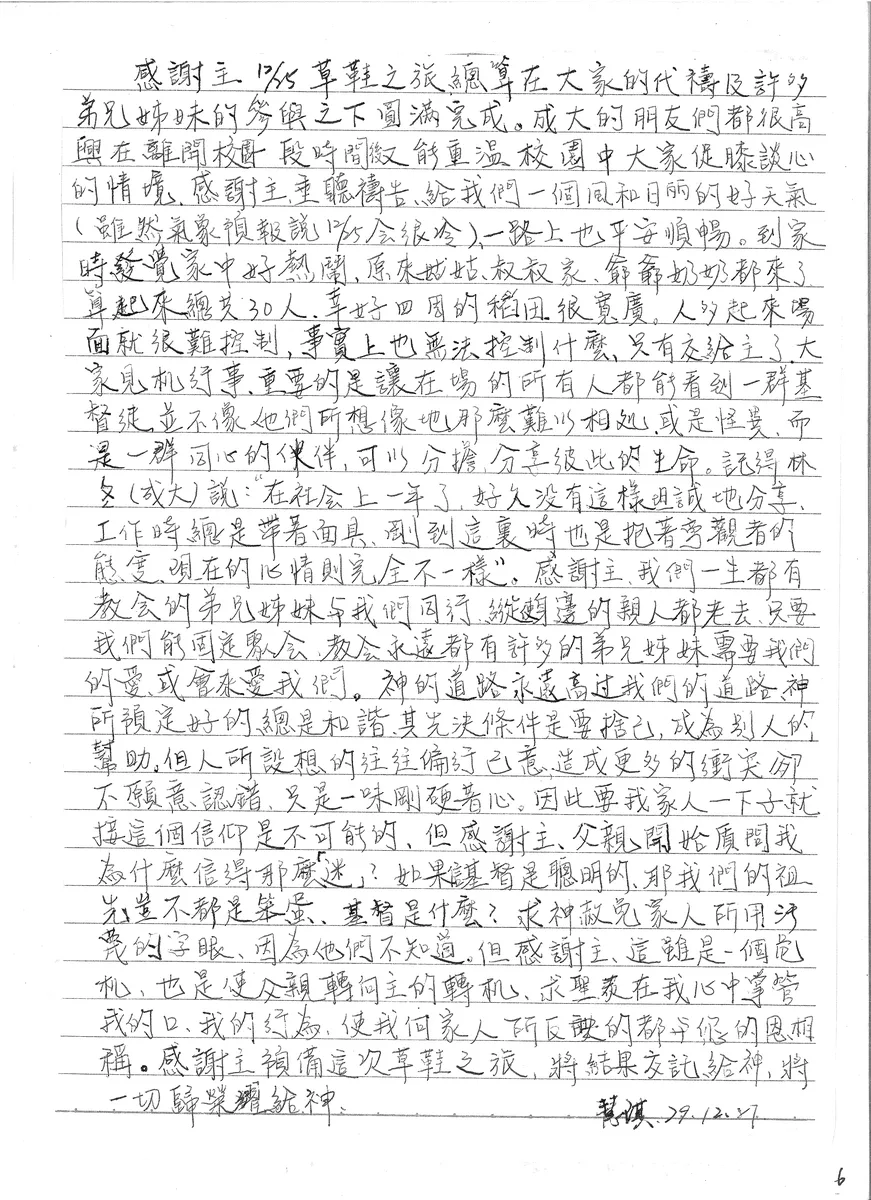 感謝主 12/25 草鞋之旅總算在大家的代禱及許多
弟兄姊妹的參與之下圓滿完成。成大的朋友們都很高
興在離開校園一段時間後又能重溫校園中大家促膝談心
的情境、感謝主、垂聽禱告、給我們一個風和日丽的好天氣
(雖然氣象預報說12/25会很冷)、一路上也平安順暢。到家
時發覺家中好熱鬧、原來姑姑、叔叔家、爺爺奶奶都來了
算起來總共30人、幸好四周的稻田很寬廣。人多起來場
面就很難控制, 事實上也無法控制什麼、只有交給主了、大
家見机行事、重要的是讓在場的所有人都能看到一群基
督徒並不像他們所想像地那麼難以相処、或是怪異、而
是一群同心的伙伴, 可以分擔、分享彼此的生命。記得林
冬(成大)說:"在社会上一年了、好久没有這樣坦誠地分享、
工作時總是带著面具、剛到這裏時也是抱著旁觀者的
態度、現在的心情則完全不一樣"。感謝主、我們一生都有
教会的弟兄姊妹与我們同行、縱使身邊的親人都老去、只要
我們能固定聚会、教会永遠都有許多的弟兄姊妹需要我們
的愛、或會來愛我們。神的道路永遠高过我們的道路、神
所預定好的總是和諧、其先決條件是要捨己, 成為别人的
幫助。但人所設想的往往偏行己意、造成更多的衝突卻
不願意認錯、只是一味剛硬著心。因此要我家人一下子就
接這個信仰是不可能的、但感謝主、父親開始質問我
為什麼信得那麼「迷」? 如果基督是聰明的、那我們的祖
先豈不都是笨蛋、基督是什麼? 求神赦免家人所用污
穢的字眼、因為他們不知道。但感謝主、這雖是一個危
机、也是使父親轉向主的轉机、求聖灵在我心中掌管
我的口、我的行為、使我向家人所反映的都与您的恩相
稱。感謝主預備這次草鞋之旅、將結果交託給神, 將
一切歸榮耀給神、
慧琪、79.12.27
6